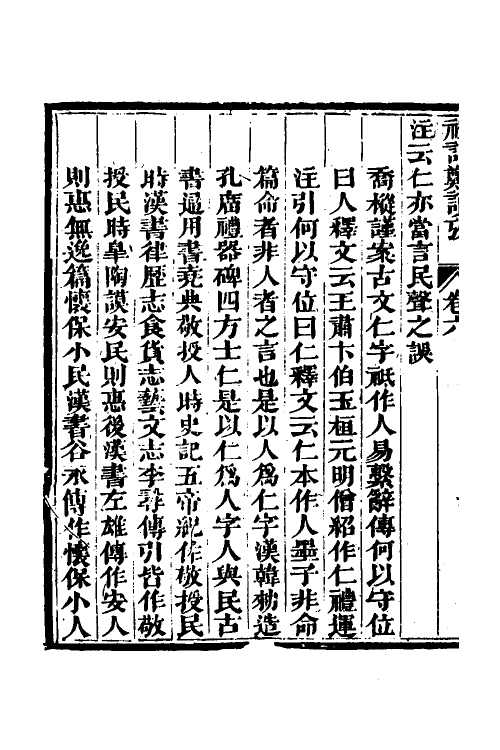 禮記鄭讀攷 卷六
注云仁亦當言民聲之誤
喬樅謹案古文仁字祇作人易繫辭傳何以守位
曰人釋文云王肅卞伯玉桓元明僧紹作仁禮運
注引何以守位曰仁釋文云仁本作人墨子非命
篇命者非人者之言也是以人爲仁字漢韓勑造
孔廟禮器碑四方士仁是以仁爲人字人與民古
書通用書堯典敬授人時史記五帝紀作敬授民
時漢書律歷志食貨志藝文志李尋傳引皆作敬
授民時皐陶謨安民則惠後漢書左雄傳作安人
則惠無逸篇懷保小民漢書谷永傳作懷保小人